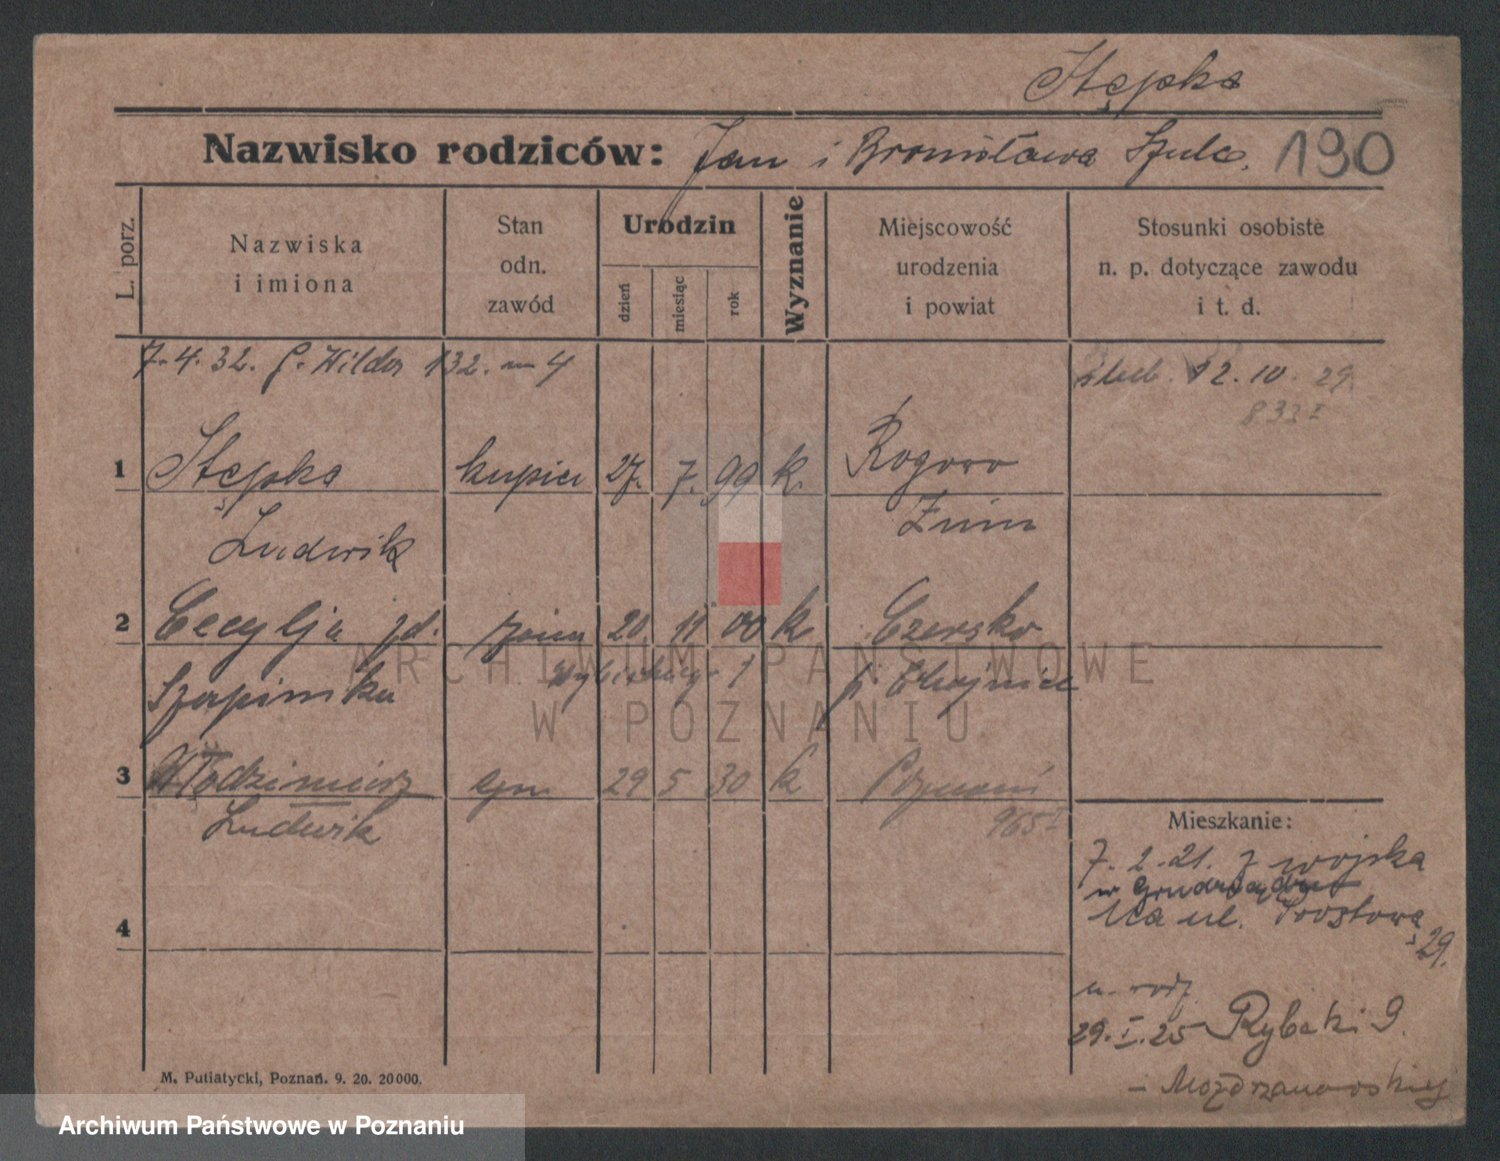 Stępka
Nazwisko rodziców: Jan i Bronisława Szulc. 190
L. porz.
Nazwiska
i imiona
Stan
odn.
zawód
Urodzin
dzień
miesiąc
rok
Wyznanie
Miejscowość
urodzenia
i powiat
Stosunki osobiste
n. p. dotyczące zawodu
i t. d.
7.4.32. G. Wilda 132. m 4
12.10.29.
833 I
1 Stępka kupiec 27. 7. 99 k. Rogowo
Ludwik Żnin
2 Cecylja żona 20. 11. 00 k Czersko
1 p. Chojnice
3 Włodzimierz syn 29 5 30 k Poznań
Ludwik 965 I
4
Mieszkanie:
7.2.21. z wojska
w Grudziądzu
na ul. Prostowa
29.
u. rodz.
29.I.25 Rybaki 9.
M. Putiatycki, Poznań. 9. 20. 20000.
ARCHIWUM PAŃSTWOWE
W POZNANIU
Archiwum Państwowe w Poznaniu